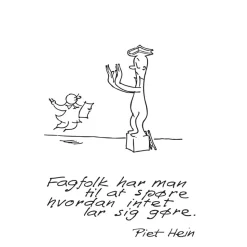 Fagfolk har man
til at spørre
hvordan intet
lar sig gøre.
Piet Hein